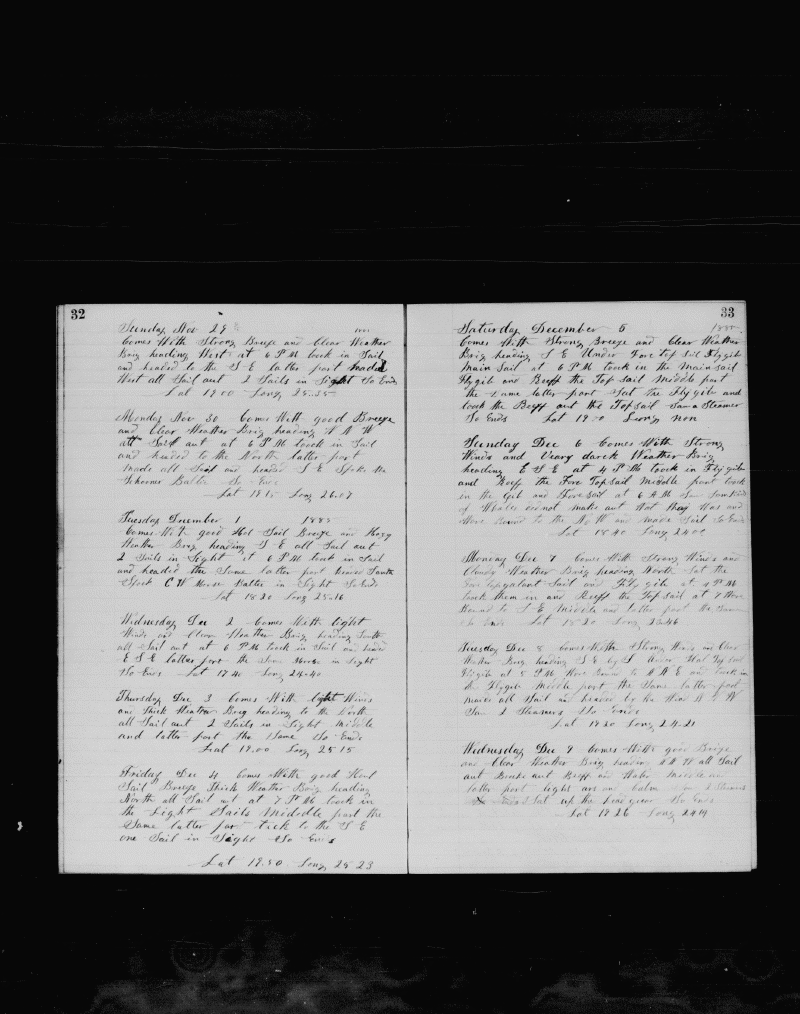 32
Sunday Nov 29
Comes With Strong Breeze and Clear Weather
Brig heading West at 6 P M took in Sail
and headed to the S E latter part headed
West all Sail aut 2 Sails in Sight So Ends
Lat 19.00 Long 25.35
Monday Nov 30 Comes With good Breeze
and Clear Weather Brig heading
all Sail aut at 6 P M took in Sail
and headed to the North latter part
made all Sail and headed S E Spoke the
Schooner So Ends
Lat 19 15 Long 26.07
Tuesday December 1
Comes With good Sail Breeze and Hazy
Weather Brig heading S E all Sail aut
2 Sails in Sight at 6 P M took in Sail
and headed the Same latter part headed South
Spoek C W Morse in Sight So Ends
Lat 18.20 Long 25.16
Wednesday Dec 2 Comes With light
Winds and Weather Brig heading South
all Sail aut at 6 P M took in Sail and headed
E S E latter part the Same in Sight
So Ends Lat 17.40 Long 24.40
Thursday Dec 3 Comes With light Winds
and Thick Weather Brig heading to the North
all Sail aut 2 Sails in Sight Middle
and latter part the Same So Ends
Lat 19.00 Long 25 15
Friday Dec 4 Comes With good
Sail Breeze Thick Weather Brig heading
North all Sail aut at 7 P M took in
the Light Sails Middle part the
Same latter par tack to the S E
one Sail in Sight So Ends
Lat 19.50 Long 25 23
33
Saturday December 5
Comes With Strong Breeze and Clear Weather
Brig heading S E Under Fore Top Sail Flygib
Main Sail at 6 P M took in the Mainsail
Flygib and Reeff the Top Sail Middle part
the Same latter part Sat the Flygib and
took the Reeff aut the Topsail Saw a Steamer
So Ends Lat 19 Long non
Sunday Dec 6 Comes With Strong
Winds and Veary darck Weather Brig
heading E S E at 4 P M took in Flygib
and Reeff the Fore Topsail Middle part took
in the Gib and Foresail at 6 A M Saw Som Kind
of Whales did not make aut What thay Was and
Wore Round to the North and made Sail So Ends
Lat 18.40 Long 24
Monday Dec 7 Comes With Strong Winds and
Cloudy Weather Brig heading North Sat the
Topgalant Sail and Flygib at 4 P M
took them in and Reeff the Topsail at 7 Wore
Round to S E Middle and latter part the Same
So Ends Lat 18 20 Long 23.46
Tuesday Dec 8 Comes With Strong Winds and Clear
Weather Brig heading S E by S Under Top Sail
Flygib at 8 P M Wore Round to N N E and took in
the Flygib Middle part the Same latter part
made all Sail and headed by the Wind
Saw 2 Steamers So Ends
Lat 19 20 Long 24.21
Wednesday Dec 9 Comes With good Breze
and Clear Weather Brig heading all Sail
aut aut Reeff Middle and
latter part light and Calm 2 Steamers
Sat up the gear So Ends
Lat 19 26 Long 24